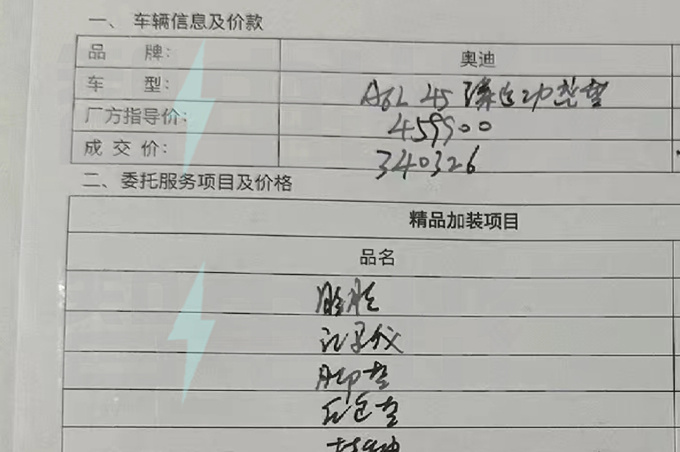 一、车辆信息及价款
品 牌： 奥迪
车 型： A6L 45 臻选动感型
厂方指导价： 459900
成 交 价： 340326
二、委托服务项目及价格
精品加装项目
品名
贴膜
记录仪
脚垫
后备垫